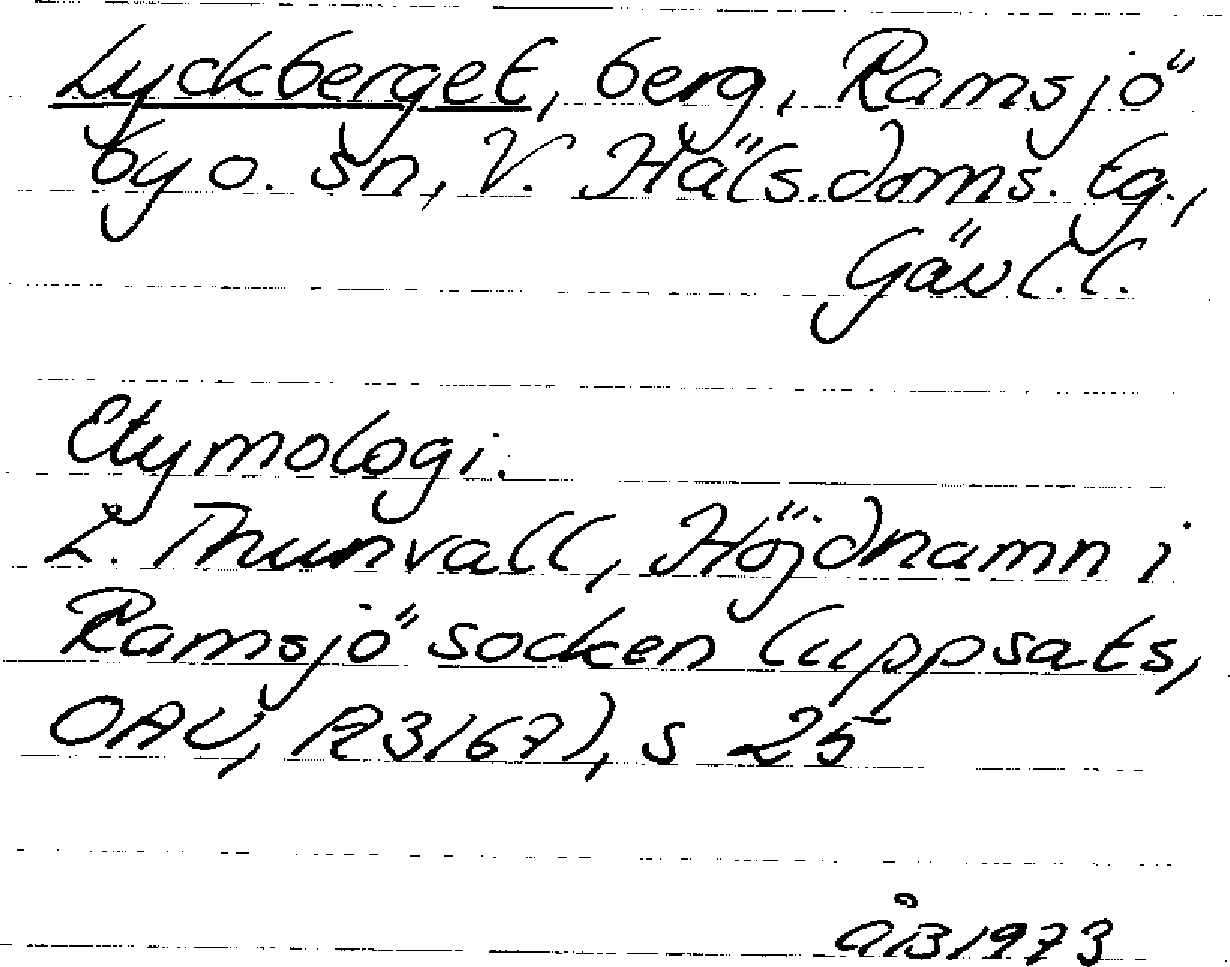 Lyckberget, berg, Ramsjö
by o. sn, V. Häls. doms. tg.,
Gävl. l.
Etymologi.
L. Thunvall, Höjdnamn i
Ramsjö socken (uppsats,
OAU, R3167), s 25
ÅB 1973